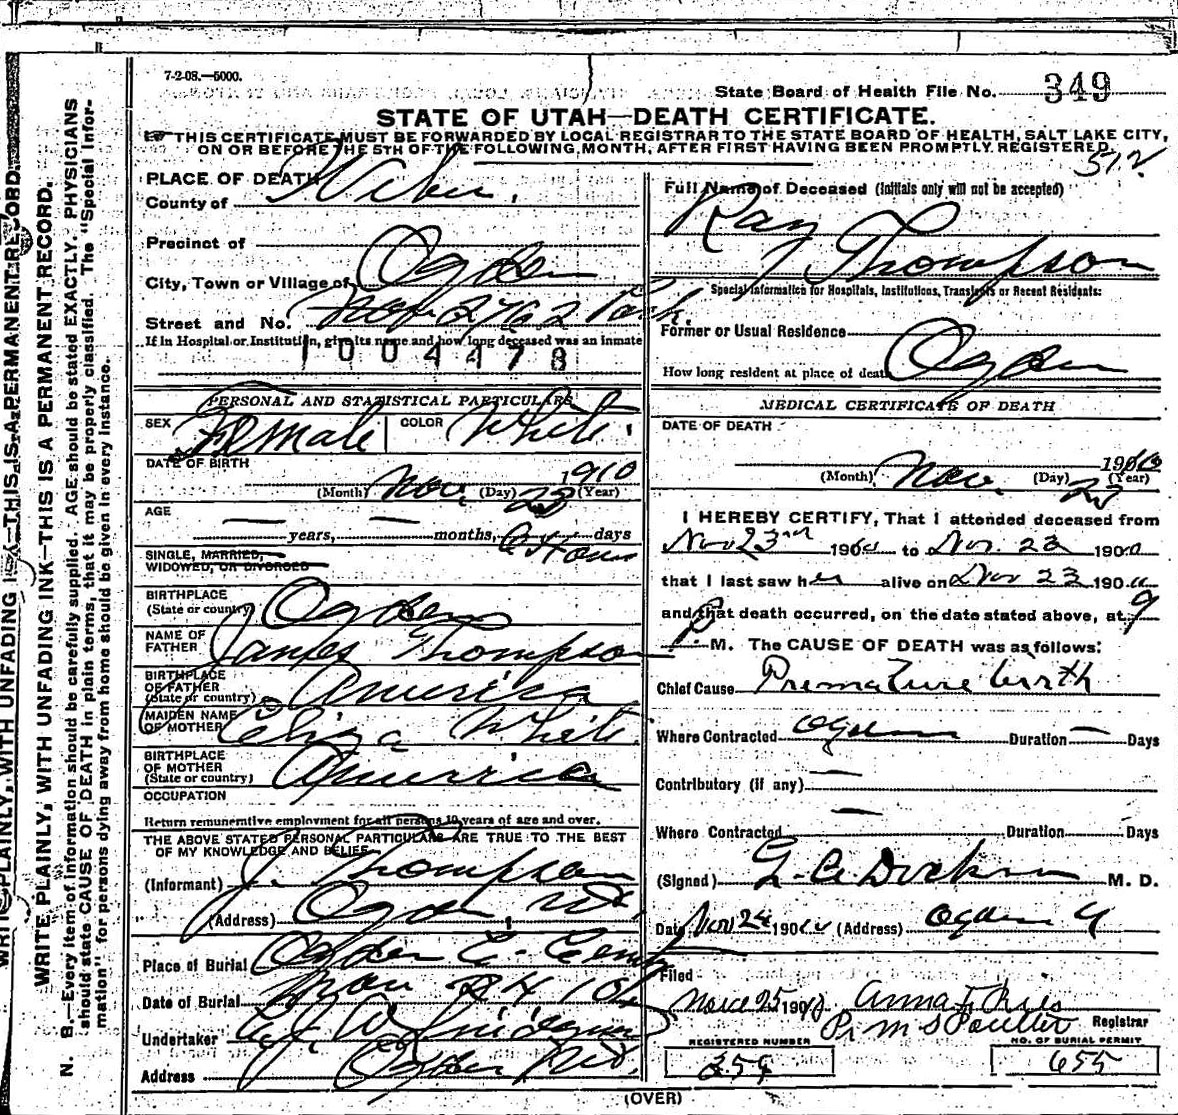 WRITE PLAINLY, WITH UNFADING INK—THIS IS A PERMANENT RECORD.
WRITE PLAINLY, WITH UNFADING INK—THIS IS A PERMANENT RECORD.
N. B.—Every item of information should be carefully supplied. AGE should be stated EXACTLY. PHYSICIANS
should state CAUSE OF DEATH in plain terms, that it may be properly classified. The "Special Infor-
mation" for persons dying away from home should be given in every instance.
7-2-08.—5000.
State Board of Health File No. 349
STATE OF UTAH—DEATH CERTIFICATE.
THIS CERTIFICATE MUST BE FORWARDED BY LOCAL REGISTRAR TO THE STATE BOARD OF HEALTH, SALT LAKE CITY,
ON OR BEFORE THE 5TH OF THE FOLLOWING MONTH, AFTER FIRST HAVING BEEN PROMPTLY REGISTERED.
512
PLACE OF DEATH
County of Weber.
Precinct of
City, Town or Village of Ogden
Street and No. 2762
If in Hospital or Institution, give its name and how long deceased was an inmate
1004478
PERSONAL AND STATISTICAL PARTICULARS
SEX Female COLOR White.
DATE OF BIRTH
1910
(Month) Nov. (Day) 23 (Year)
AGE
— years, — months, 6 Hours days
SINGLE, MARRIED,
WIDOWED, OR DIVORCED
BIRTHPLACE
(State or country) Ogden
NAME OF
FATHER James Thompson
BIRTHPLACE
OF FATHER
(State or country) America
MAIDEN NAME
OF MOTHER Eliza White.
BIRTHPLACE
OF MOTHER
(State or country) America
OCCUPATION
Return remunerative employment for all persons 10 years of age and over.
THE ABOVE STATED PERSONAL PARTICULARS ARE TRUE TO THE BEST
OF MY KNOWLEDGE AND BELIEF
(Informant) J. Thompson
(Address) Ogden, Ut.
Place of Burial Ogden C. Cemty
Date of Burial Nov 24 10
Undertaker
Address Ogden Ut.
Full Name of Deceased (Initials only will not be accepted)
Ray
Thompson
Special Information for Hospitals, Institutions, Transients or Recent Residents:
Former or Usual Residence
How long resident at place of death Ogden
MEDICAL CERTIFICATE OF DEATH
DATE OF DEATH
1910
(Month) Nov. (Day) 23 (Year)
I HEREBY CERTIFY, That I attended deceased from
Nov 23rd 1910 to Nov. 23 1910
that I last saw her alive on Nov 23 1910
and that death occurred, on the date stated above, at 9
P M. The CAUSE OF DEATH was as follows:
Chief Cause Premature birth
Where Contracted Ogden Duration — Days
Contributory (if any) —
—
Where Contracted Duration Days
(Signed) M. D.
Date Nov 24 1910 (Address) Ogden U
Filed
Nov 25 1910 Anna F. Ries
Pr. M S Poulter Registrar
REGISTERED NUMBER
NO. OF BURIAL PERMIT
655
(OVER)